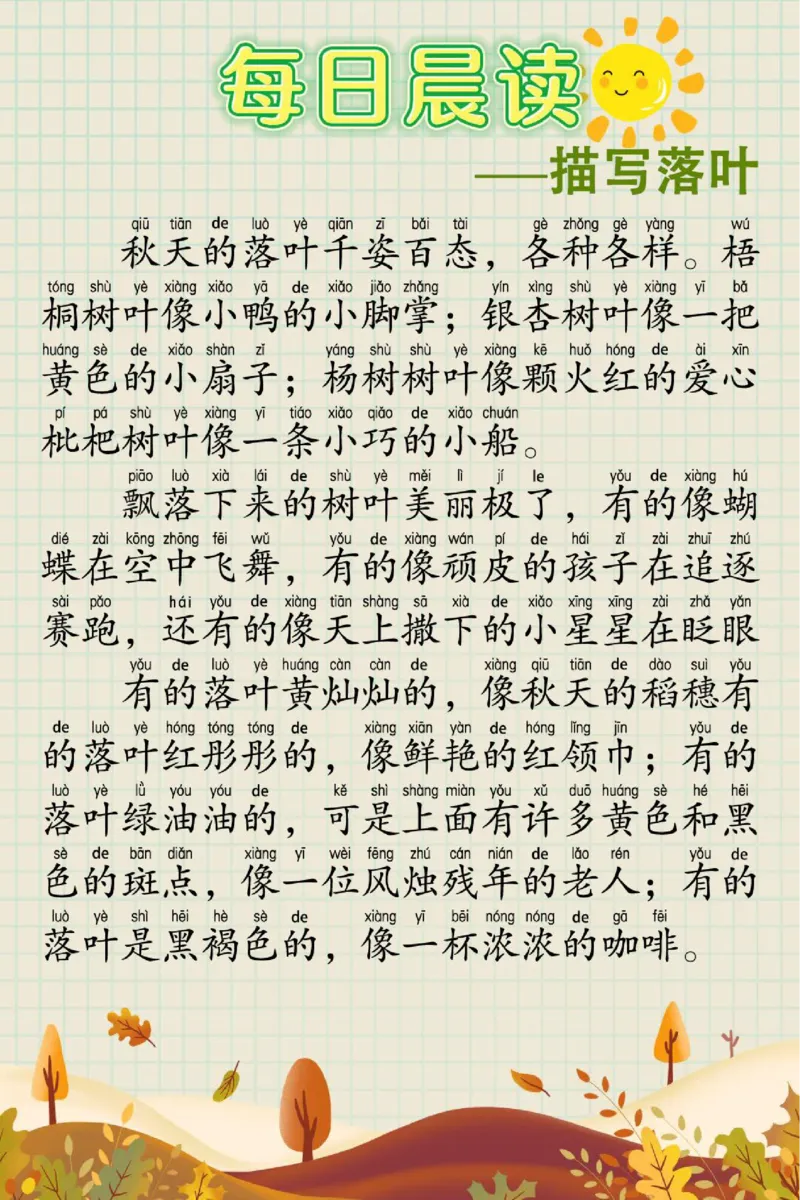 每日晨读
——描写落叶
qiū tiān de luò yè qiān zī bǎi tài gè zhǒng gè yàng wú
秋天的落叶千姿百态，各种各样。梧
tóng shù yè xiàng xiǎo yā de xiǎo jiǎo zhǎng yín xìng shù yè xiàng yī bǎ
桐树叶像小鸭的小脚掌；银杏树叶像一把
huáng sè de xiǎo shàn zǐ yáng shù shù yè xiàng kē huǒ hóng de ài xīn
黄色的小扇子；杨树树叶像颗火红的爱心
pí pá shù yè xiàng yī tiáo xiǎo qiǎo de xiǎo chuán
枇杷树叶像一条小巧的小船。
piāo luò xià lái de shù yè měi lì jí le yǒu de xiàng hú
飘落下来的树叶美丽极了，有的像蝴
dié zài kōng zhōng fēi wǔ yǒu de xiàng wán pí de hái zǐ zài zhuī zhú
蝶在空中飞舞，有的像顽皮的孩子在追逐
sài pǎo hái yǒu de xiàng tiān shàng sā xià de xiǎo xīng xīng zài zhǎ yǎn
赛跑，还有的像天上撒下的小星星在眨眼
yǒu de luò yè huáng càn càn de xiàng qiū tiān de dào suì yǒu
有的落叶黄灿灿的，像秋天的稻穗有
de luò yè hóng tóng tóng de xiàng xiān yàn de hóng lǐng jīn yǒu de
的落叶红彤彤的，像鲜艳的红领巾；有的
luò yè lǜ yóu yóu de kě shì shàng miàn yǒu xǔ duō huáng sè hé hēi
落叶绿油油的，可是上面有许多黄色和黑
sè de bān diǎn xiàng yī wèi fēng zhú cán nián de lǎo rén yǒu de
色的斑点，像一位风烛残年的老人；有的
luò yè shì hēi hè sè de xiàng yī bēi nóng nóng de gā fēi
落叶是黑褐色的，像一杯浓浓的咖啡。